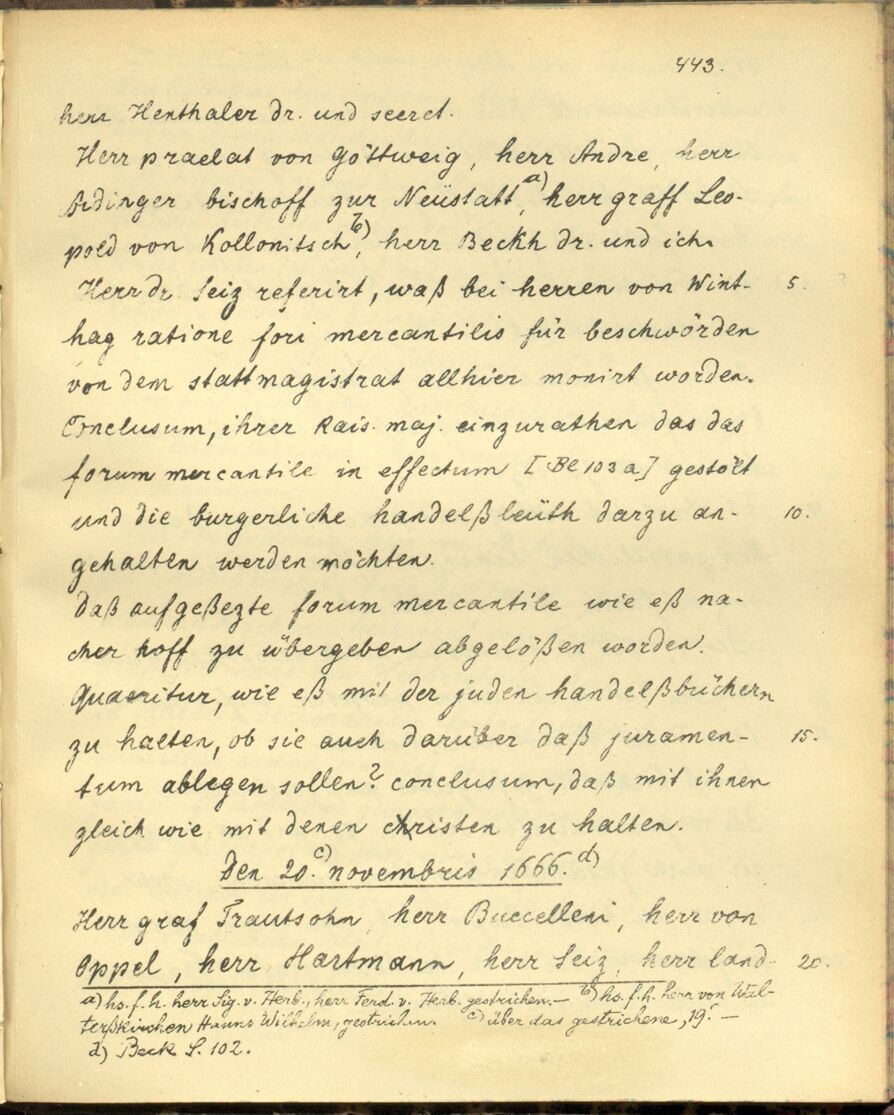 443.
herr Henthaler dr. und secret.
Herr praelat von Göttweig, herr Andre, herr
Ardinger bischoff zur Neüstatt,a) herr graff Leo-
pold von Kollonitsch b), herr Beckh dr. und ich.
Herr dr. Seiz referirt, waß bei herren von Wint- 5.
hag ratione fori mercantilis für beschwörden
von dem stattmagistrat allhier monirt worden.
Conclusum, ihrer Kais. maj. einzurathen das das
forum mercantile in effectum [Bl 103 a] gestölt
und die burgerliche handelßleüth darzu an- 10.
gehalten werden möchten.
Daß aufgeßezte forum mercantile wie eß na-
cher hoff zu übergeben abgelößen worden.
Quaeritur, wie eß mit der juden handelßbüchern
zu halten, ob sie auch darüber daß juramen- 15.
tum ablegen sollen? conclusum, daß mit ihnen
gleich wie mit denen christen zu halten.
Den 20.c) novembris 1666.d)
Herr graf Trautsohn, herr Buccelleni, herr von
Oppel, herr Hartmann, herr Seiz, herr land- 20.
a) hs. f. h. herr Sig. v. Herb., herr Ferd. v. Herb. gestrichen. — b) hs. f. h. herr von Wal-
terßkirchen Hanns Wilhelm, gestrichen. c) über das gestrichene „19". —
d) Beck S. 102.